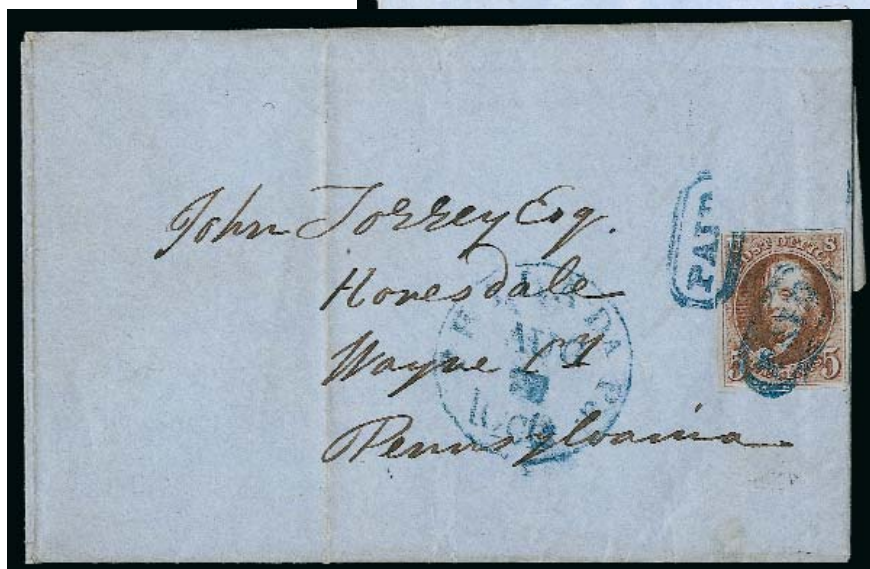 John Torrey Esq.
Honesdale
Wayne Cy
Pennsylvania
PAID
POST OFFICE
5 5